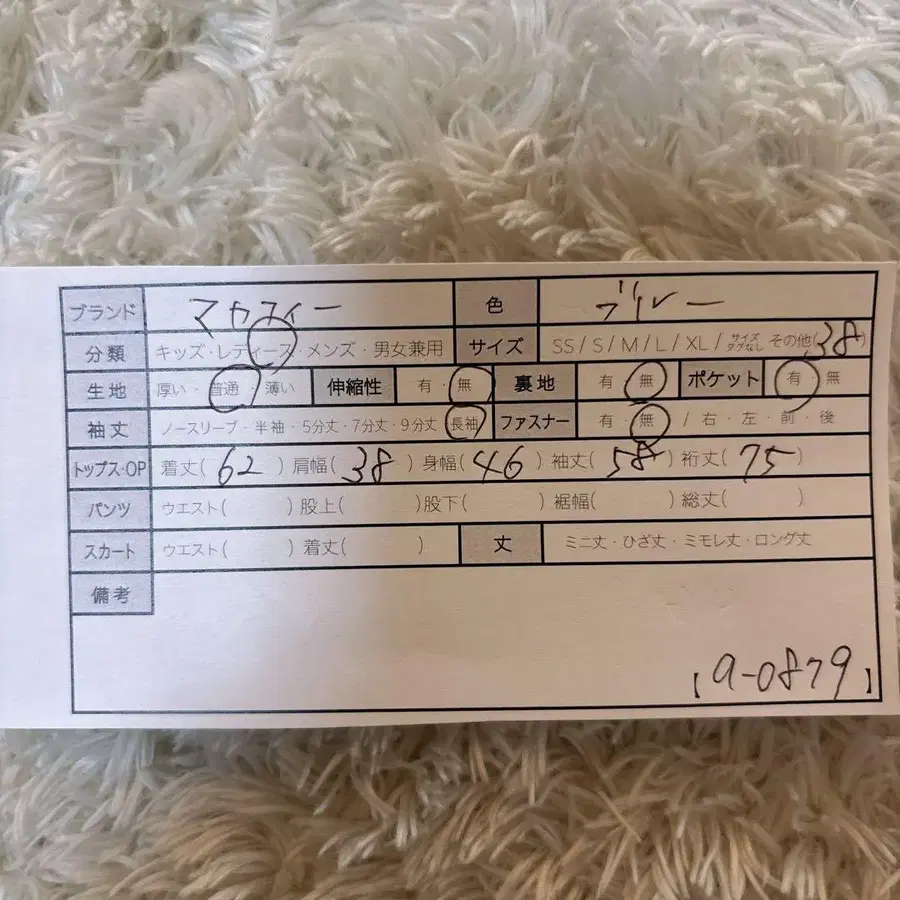 ブランド マカフィー 色 ブルー
分類 キッズ・レディース・メンズ・男女兼用 サイズ SS / S / M / L / XL / サイズタグなし その他(38)
生地 厚い・普通・薄い 伸縮性 有・無 裏地 有・無 ポケット 有・無
袖丈 ノースリーブ・半袖・5分丈・7分丈・9分丈・長袖 ファスナー 有・無 / 右・左・前・後
トップス・OP 着丈(62) 肩幅(38) 身幅(46) 袖丈(58) 裄丈(75)
パンツ ウエスト( ) 股上( ) 股下( ) 裾幅( ) 総丈( )
スカート ウエスト( ) 着丈( ) 丈 ミニ丈・ひざ丈・ミモレ丈・ロング丈
備考
【9-0879】